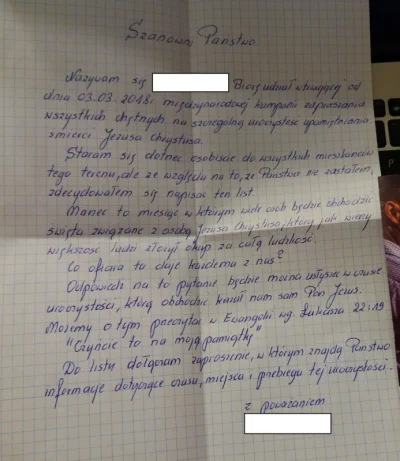 Szanowni Państwo
Nazywam się Biorę udział w trwającej od
dnia 03.03.2018r. międzynarodowej kampanii zapraszania
wszystkich chętnych na szczególną uroczystość upamiętniania
śmierci Jezusa Chrystusa.
Staram się dotrzeć osobiście do wszystkich mieszkańców
tego terenu, ale ze względu na to, że Państwa nie zastałem,
zdecydowałem się napisać ten list.
Marzec to miesiąc w którym wiele osób będzie obchodzić
święta związane z osobą Jezusa Chrystusa, który jak wierzy
większość ludzi złożył okup za całą ludzkość.
Co ofiara ta daje każdemu z nas?
Odpowiedź na to pytanie będzie można usłyszeć w czasie
uroczystości, którą obchodzić kazał nam sam Pan Jezus.
Możemy o tym przeczytać w Ewangelii wg. Łukasza 22:19
"Czyńcie to na moją pamiątkę"
Do listu dołączam zaproszenie, w którym znajdą Państwo
informacje dotyczące czasu, miejsca i przebiegu tej uroczystości.
z poważaniem